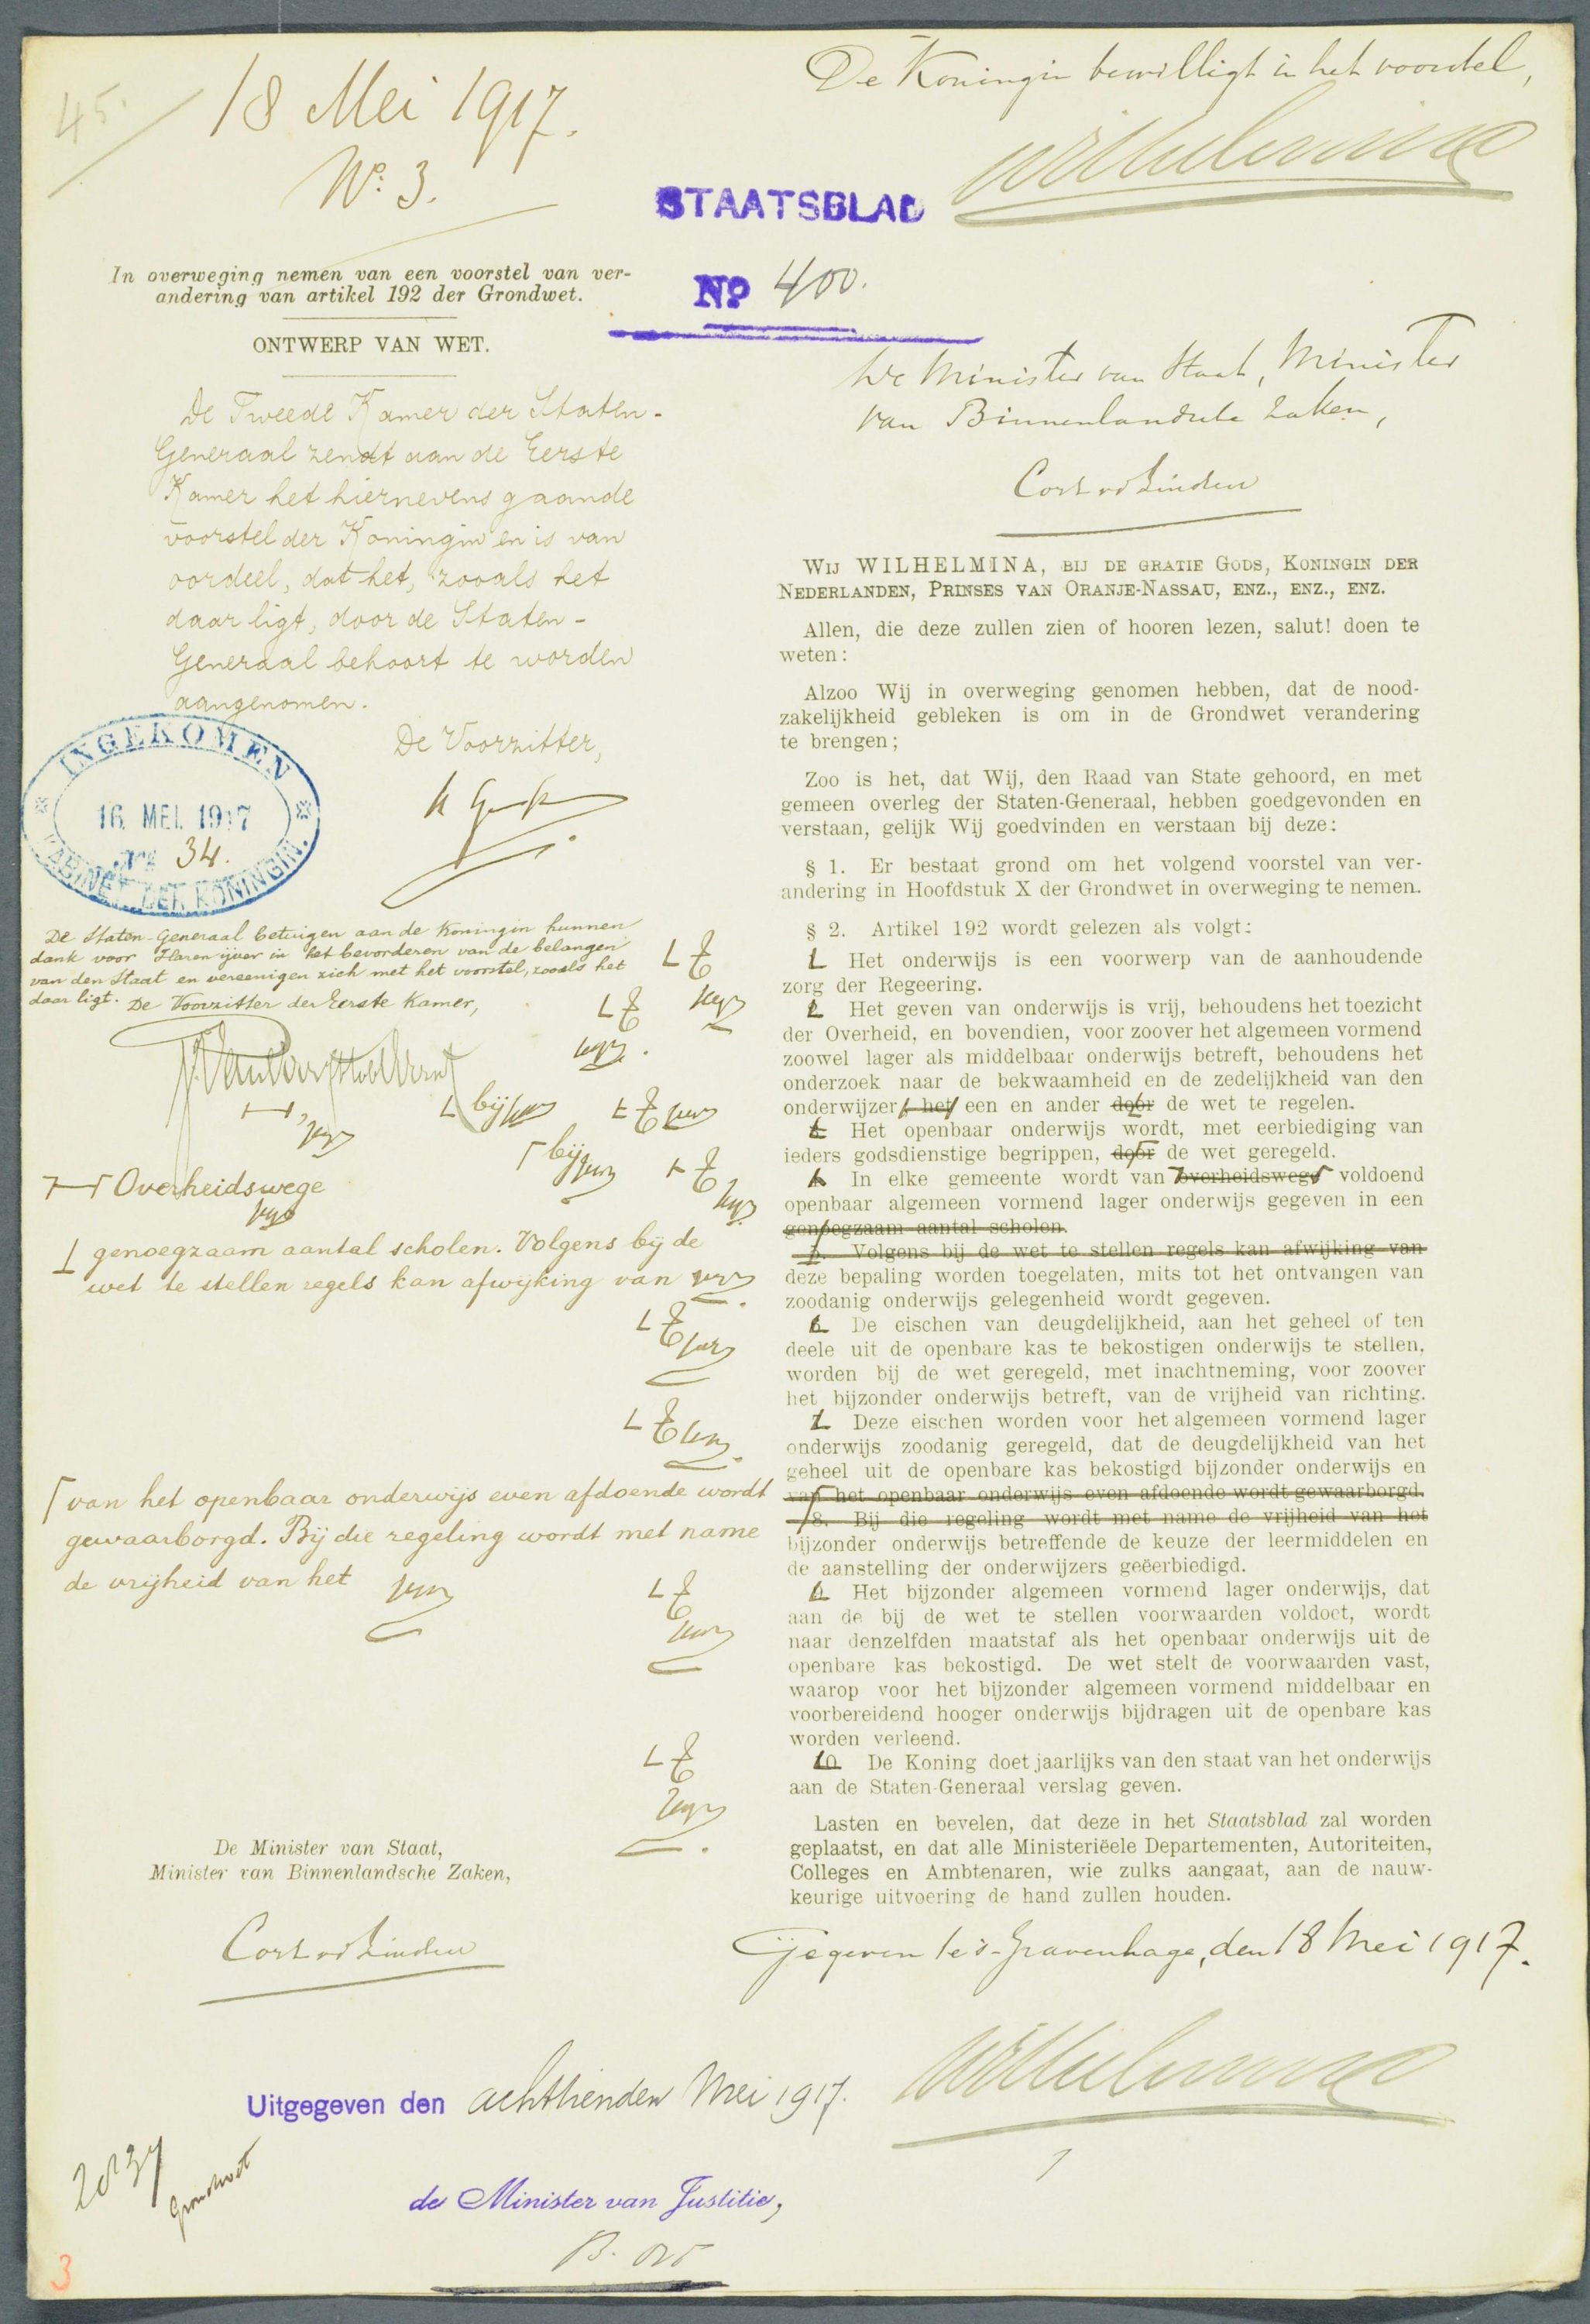 45.
18 Mei 1917.
No. 3.
De Koningin bewilligt in het voorstel,
Wilhelmina
STAATSBLAD
No 400.
In overweging nemen van een voorstel van ver-
andering van artikel 192 der Grondwet.
ONTWERP VAN WET.
De Tweede Kamer der Staten-
Generaal zendt aan de Eerste
Kamer het hiernevens gaande
voorstel der Koningin en is van
oordeel, dat het, zooals het
daar ligt, door de Staten-
Generaal behoort te worden
aangenomen.
De Voorzitter,
INGEKOMEN
16 MEI 1917
No 34.
KABINET DER KONINGIN.
De Staten-Generaal betuigen aan de Koningin hunnen
dank voor Haren ijver in het bevorderen van de belangen
van den Staat en vereenigen zich met het voorstel, zooals het
daar ligt. De Voorzitter der Eerste Kamer,
bij
bij
Overheidswege
genoegzaam aantal scholen. Volgens bij de
wet te stellen regels kan afwijking van
van het openbaar onderwijs even afdoende wordt
gewaarborgd. Bij die regeling wordt met name
de vrijheid van het
De Minister van Staat,
Minister van Binnenlandsche Zaken,
Cort vd Linden
De Minister van Staat, Minister
van Binnenlandsche Zaken,
Cort vd Linden
WIJ WILHELMINA, BIJ DE GRATIE GODS, KONINGIN DER
NEDERLANDEN, PRINSES VAN ORANJE-NASSAU, ENZ., ENZ., ENZ.
Allen, die deze zullen zien of hooren lezen, salut! doen te
weten:
Alzoo Wij in overweging genomen hebben, dat de nood-
zakelijkheid gebleken is om in de Grondwet verandering
te brengen;
Zoo is het, dat Wij, den Raad van State gehoord, en met
gemeen overleg der Staten-Generaal, hebben goedgevonden en
verstaan, gelijk Wij goedvinden en verstaan bij deze:
§ 1. Er bestaat grond om het volgend voorstel van ver-
andering in Hoofdstuk X der Grondwet in overweging te nemen.
§ 2. Artikel 192 wordt gelezen als volgt:
1. Het onderwijs is een voorwerp van de aanhoudende
zorg der Regeering.
2. Het geven van onderwijs is vrij, behoudens het toezicht
der Overheid, en bovendien, voor zoover het algemeen vormend
zoowel lager als middelbaar onderwijs betreft, behoudens het
onderzoek naar de bekwaamheid en de zedelijkheid van den
onderwijzer, het een en ander door de wet te regelen.
Het openbaar onderwijs wordt, met eerbiediging van
ieders godsdienstige begrippen, door de wet geregeld.
4. In elke gemeente wordt van overheidswege voldoend
openbaar algemeen vormend lager onderwijs gegeven in een
genoegzaam aantal scholen.
5. Volgens bij de wet te stellen regels kan afwijking van
deze bepaling worden toegelaten, mits tot het ontvangen van
zoodanig onderwijs gelegenheid wordt gegeven.
6. De eischen van deugdelijkheid, aan het geheel of ten
deele uit de openbare kas te bekostigen onderwijs te stellen,
worden bij de wet geregeld, met inachtneming, voor zoover
het bijzonder onderwijs betreft, van de vrijheid van richting.
7. Deze eischen worden voor het algemeen vormend lager
onderwijs zoodanig geregeld, dat de deugdelijkheid van het
geheel uit de openbare kas bekostigd bijzonder onderwijs en
van het openbaar onderwijs even afdoende wordt gewaarborgd.
8. Bij die regeling wordt met name de vrijheid van het
bijzonder onderwijs betreffende de keuze der leermiddelen en
de aanstelling der onderwijzers geëerbiedigd.
9. Het bijzonder algemeen vormend lager onderwijs, dat
aan de bij de wet te stellen voorwaarden voldoet, wordt
naar denzelfden maatstaf als het openbaar onderwijs uit de
openbare kas bekostigd. De wet stelt de voorwaarden vast,
waarop voor het bijzonder algemeen vormend middelbaar en
voorbereidend hooger onderwijs bijdragen uit de openbare kas
worden verleend.
10. De Koning doet jaarlijks van den staat van het onderwijs
aan de Staten-Generaal verslag geven.
Lasten en bevelen, dat deze in het Staatsblad zal worden
geplaatst, en dat alle Ministeriëele Departementen, Autoriteiten,
Colleges en Ambtenaren, wie zulks aangaat, aan de nauw-
keurige uitvoering de hand zullen houden.
Gegeven te 's-Gravenhage, den 18 Mei 1917.
Wilhelmina
Uitgegeven den achttienden Mei 1917.
de Minister van Justitie,
B. Ort
Grondwet
3